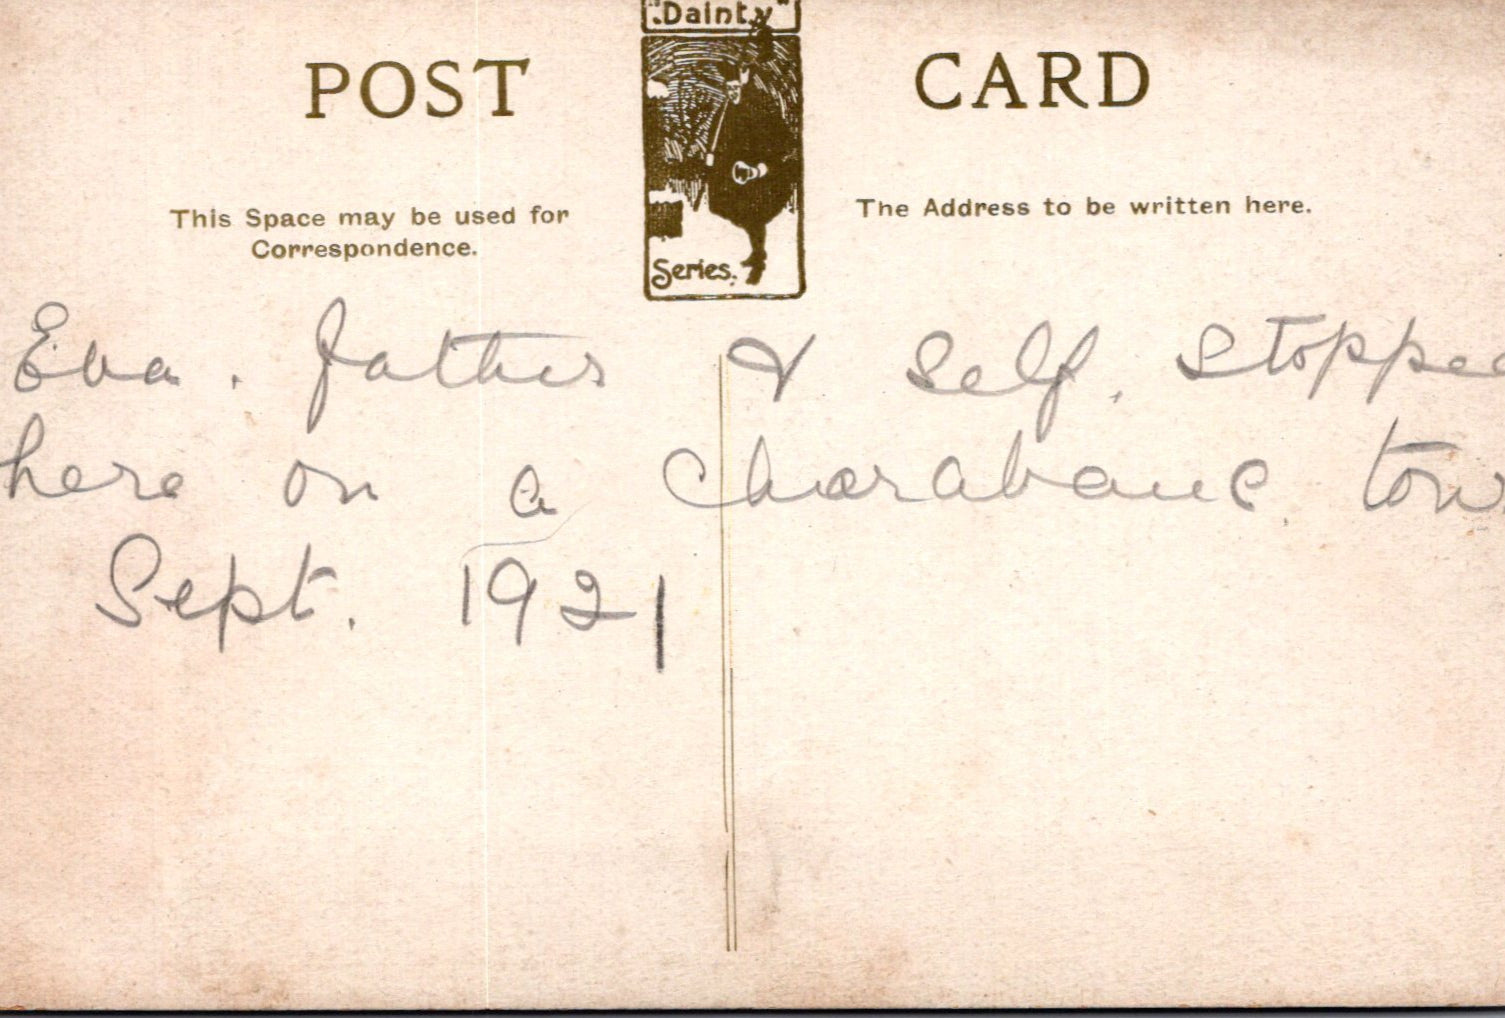 "Dainty"
POST CARD
This Space may be used for
Correspondence.
The Address to be written here.
Series.
Eva. father & Self. Stopped
here on a Charabanc. tour
Sept. 1921